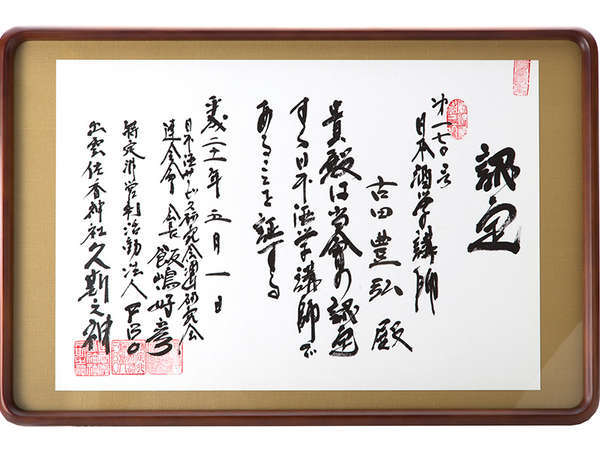 認定
第一七〇号
日本酒学講師
古田豊弘 殿
貴殿は当会の認定
する日本酒学講師で
あることを証する
平成二十一年五月一日
日本酒サービス研究会酒匠研究会
連合会 会長 飯嶋好彦
特定非営利活動法人FBO
出雲佐香神社 久斯之神